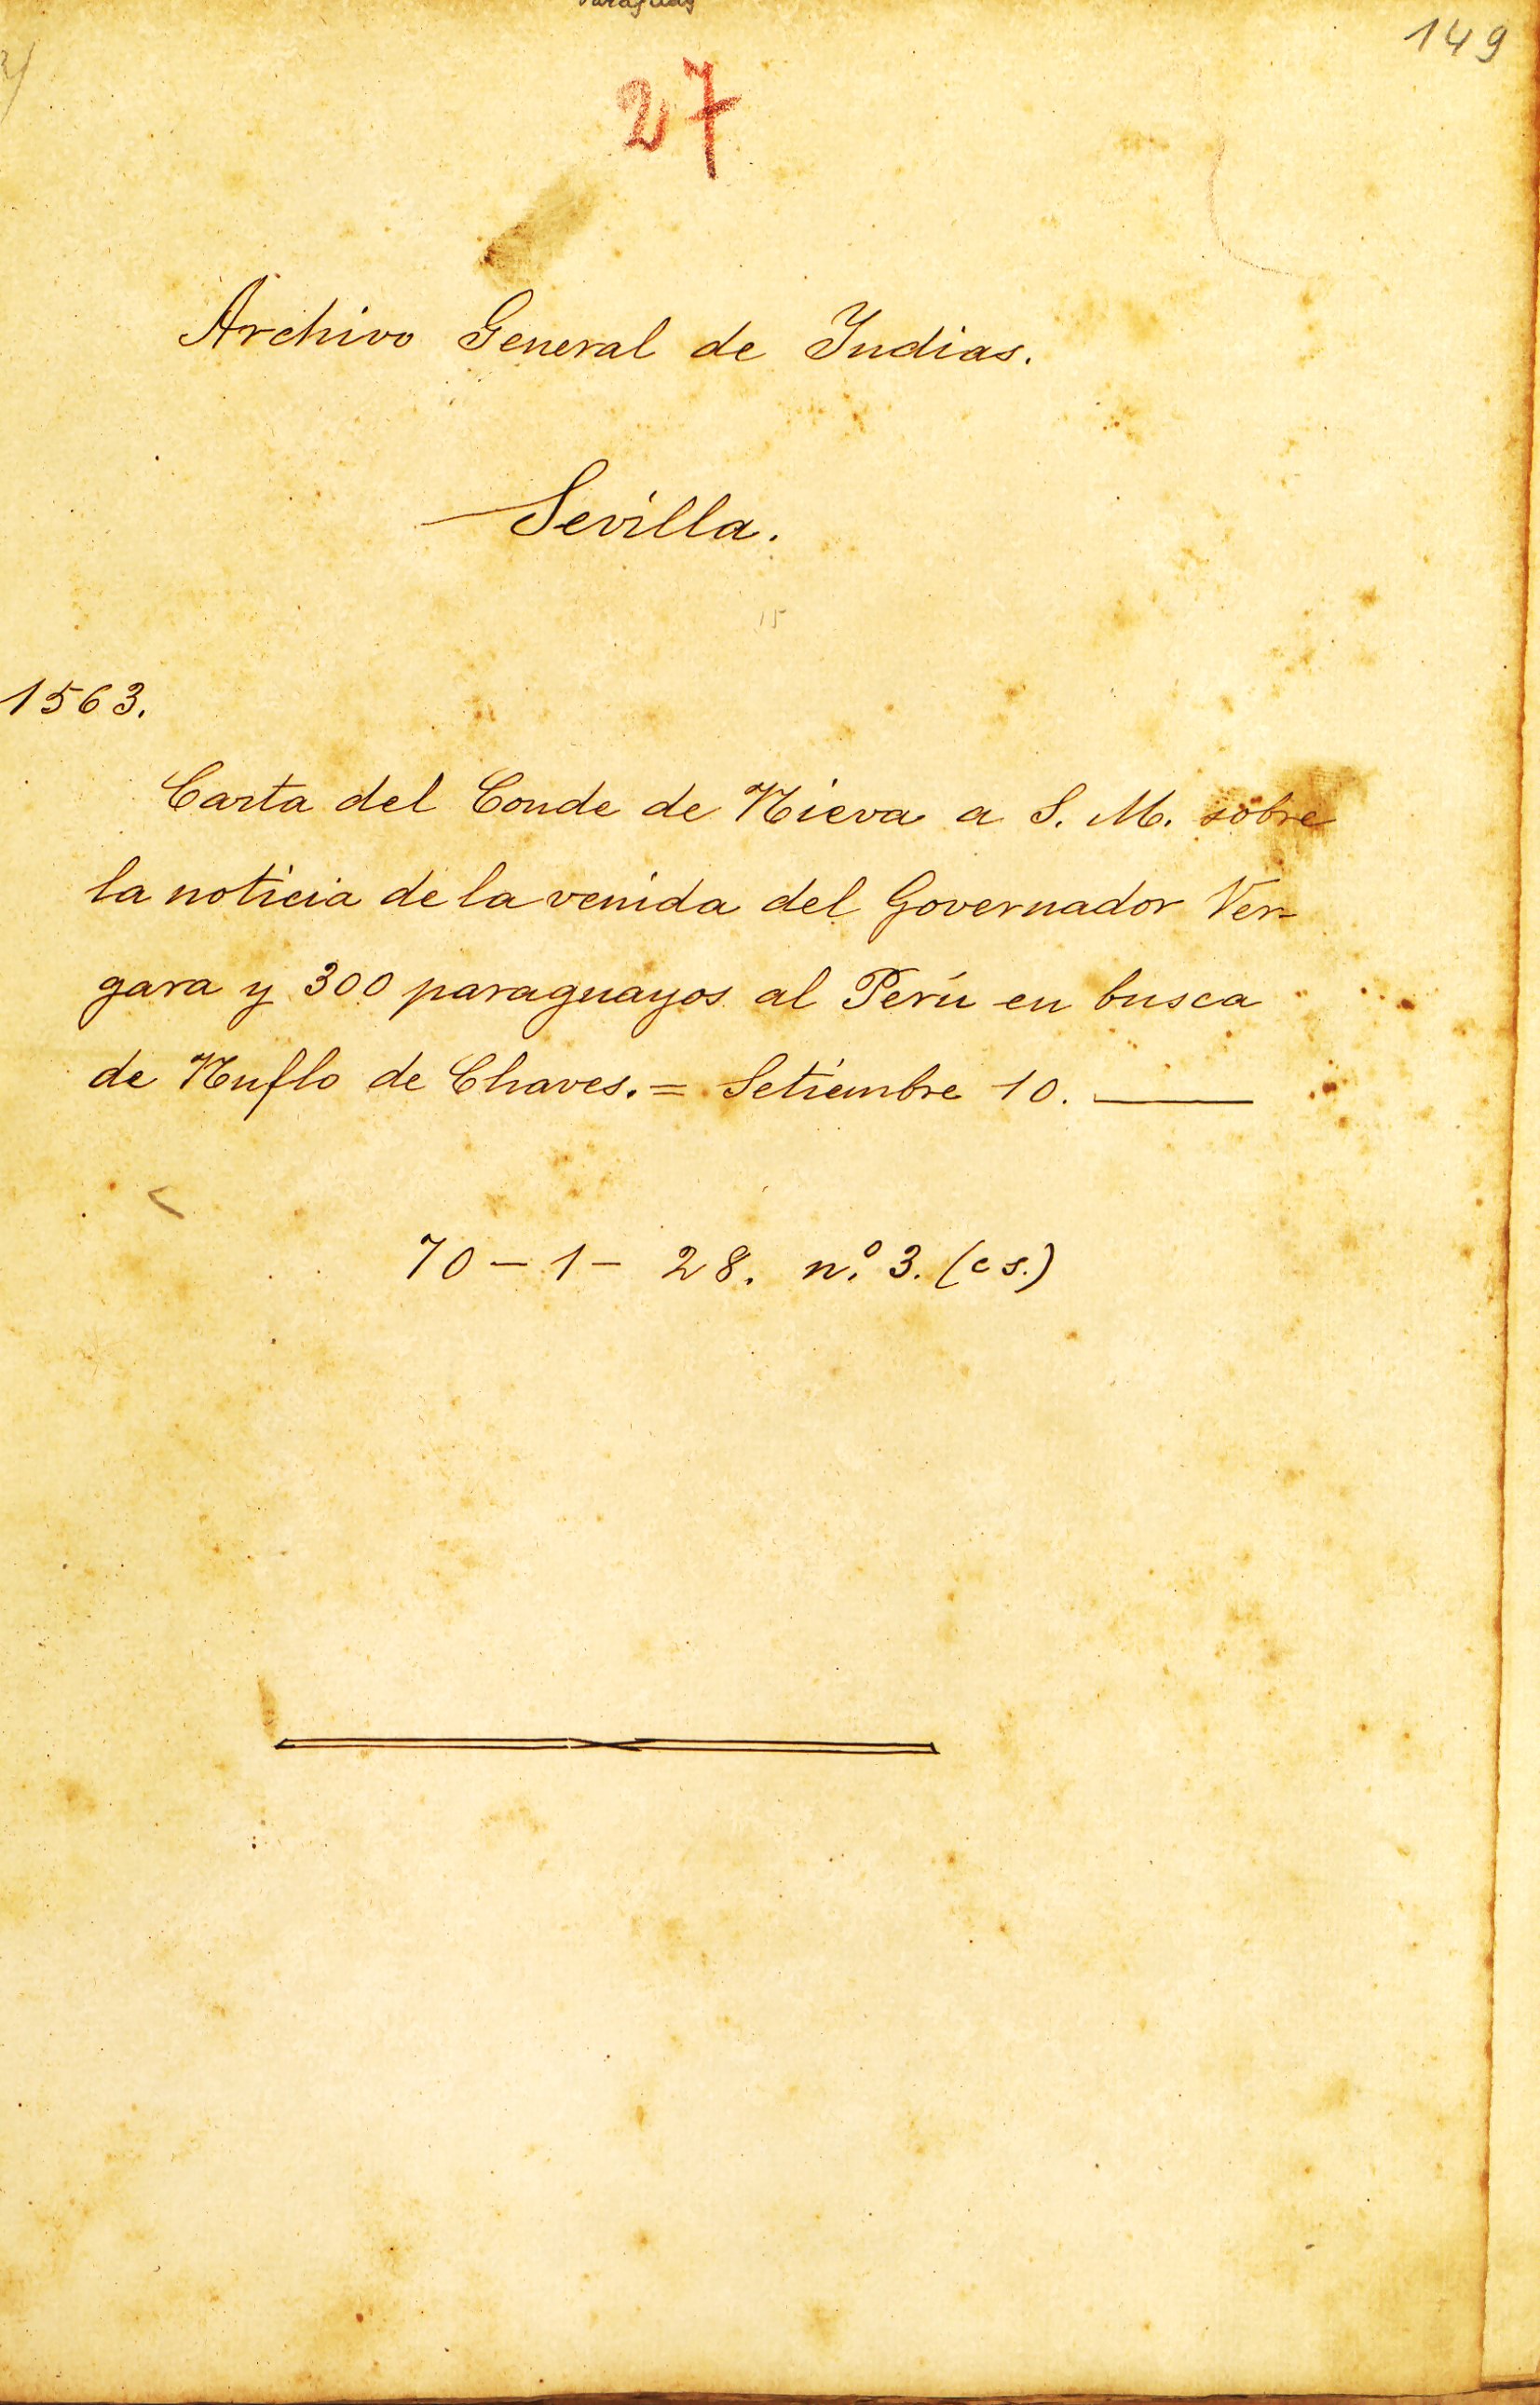 Paraguay
149
27
Archivo General de Indias.
Sevilla.
15
1563.
Carta del Conde de Nieva a S. M. sobre
la noticia de la venida del Governador Ver-
gara y 300 paraguayos al Perú en busca
de Nuflo de Chaves. = Setiembre 10.
70-1-28. n.º 3. (es.)